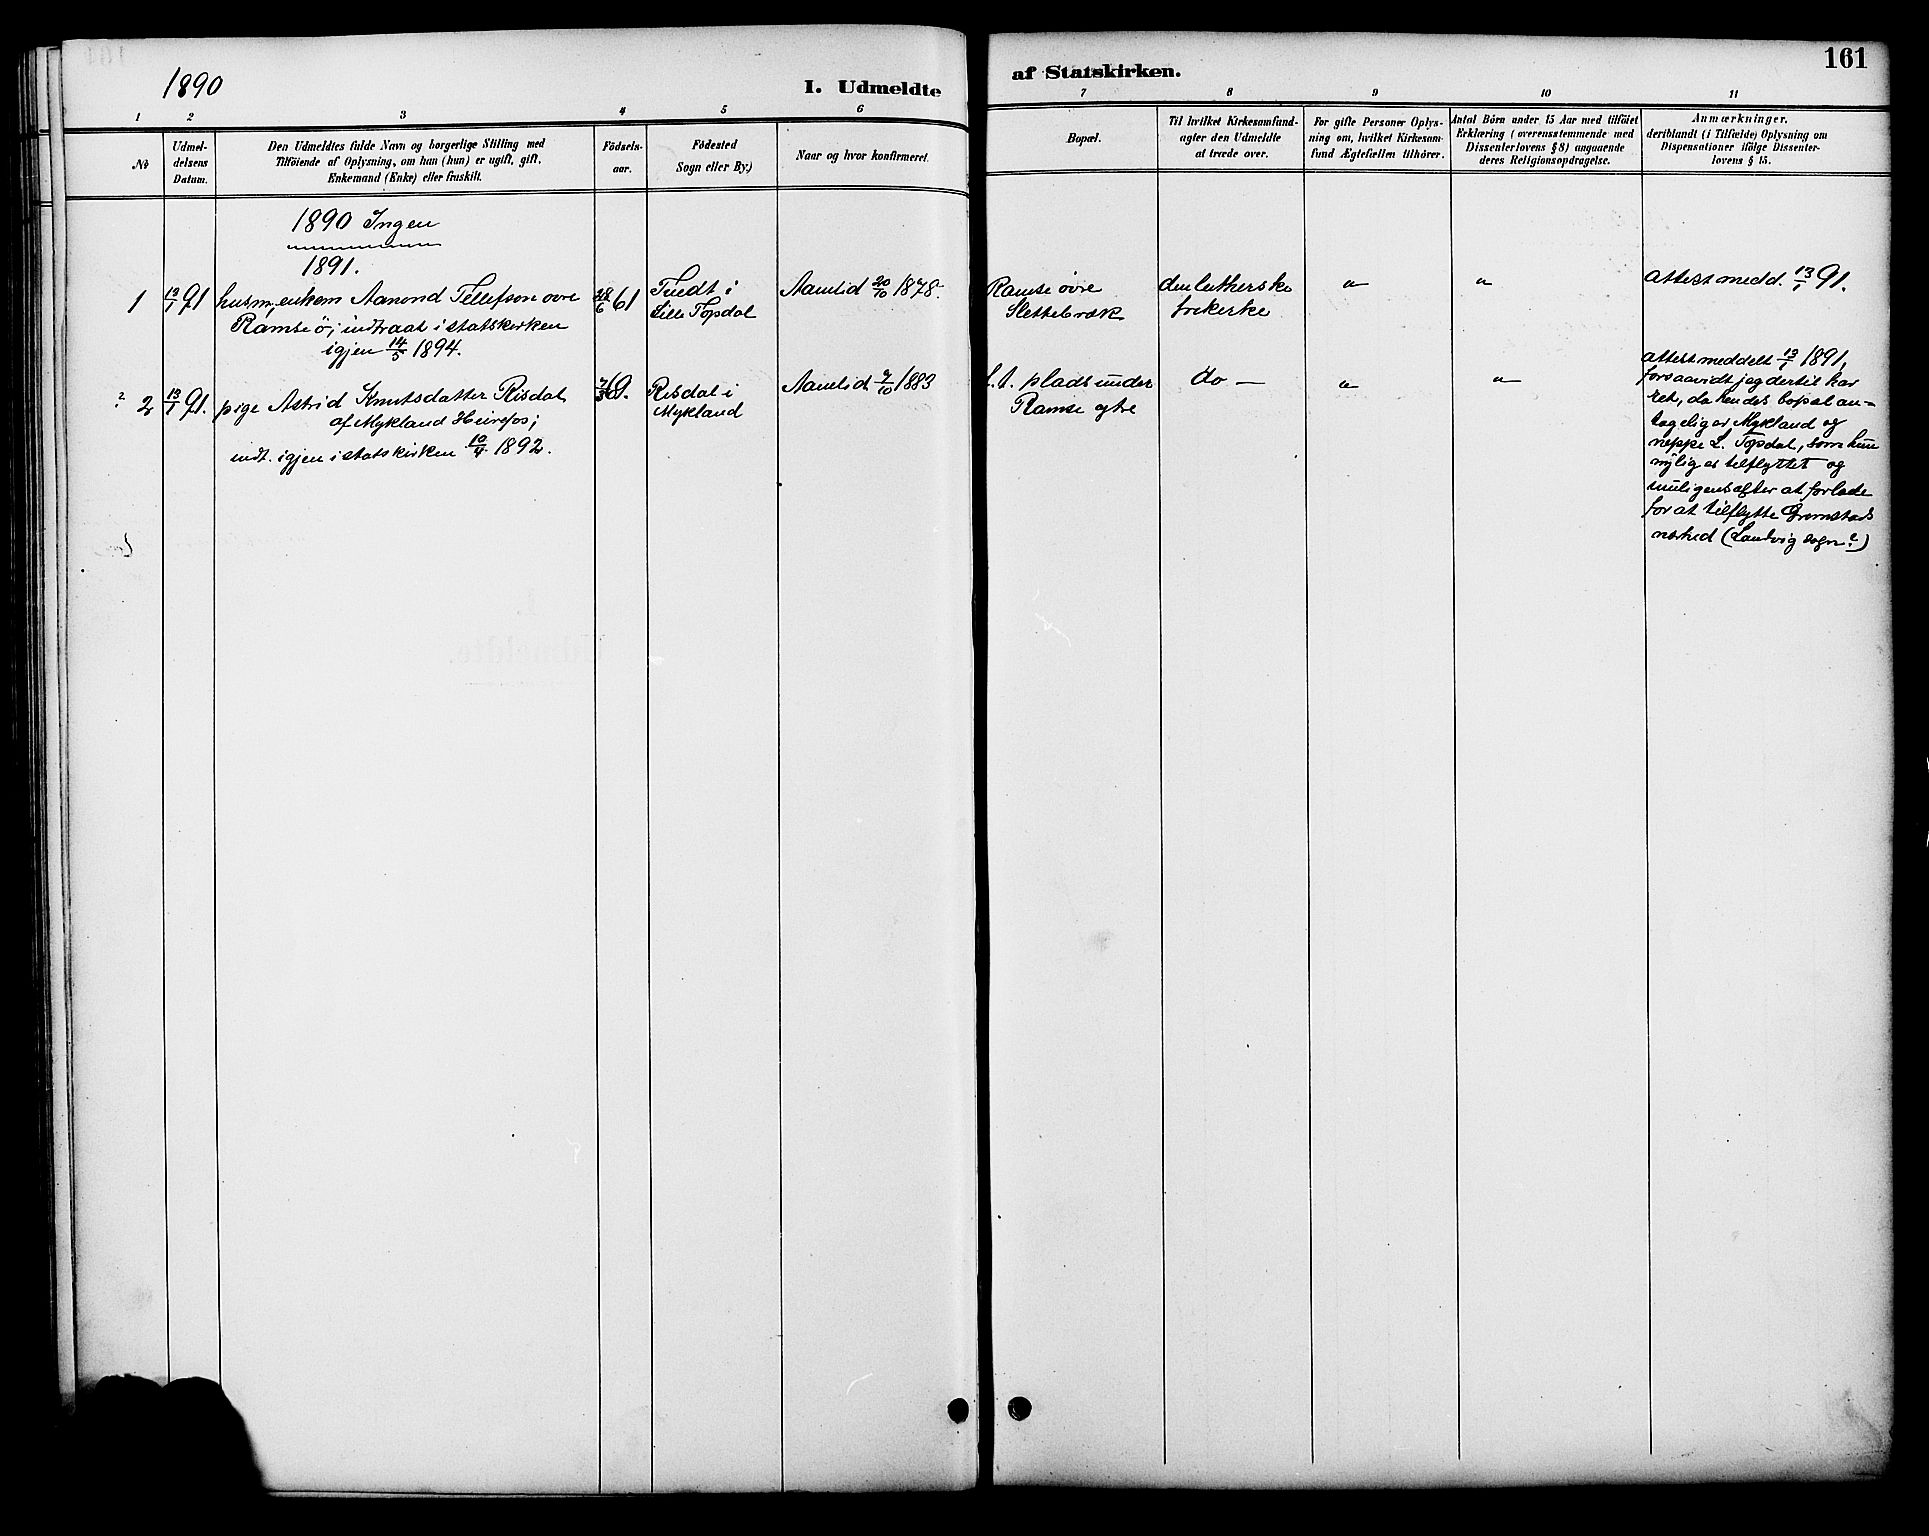 161
1890
I. Udmeldte af Statskirken.
1 2 3 4 5 6 7 8 9 10 11
No
Udmel-
delsens
Datum.
Den Udmeldtes fulde Navn og borgerlige Stilling med
Tilföiende af Oplysning, om han (hun) er ugift, gift,
Enkemand (Enke) eller fraskilt.
Födsels-
aar.
Födested
Sogn eller By.)
Naar og hvor konfirmeret.
Bopæl.
Til hvilket Kirkesamfund-
agter den Udmeldte
at træde over.
For gifte Personer Oplys-
ning om, hvilket Kirkesam-
fund Ægtefællen tilhörer.
Antal Börn under 15 Aar med tilföiet
Erklæring (overensstemmende med
Dissenterlovens § 8) angaaende
deres Religionsopdragelse.
Anmærkninger,
deriblandt (i Tilfælde) Oplysning om
Dispensationer ifölge Dissenter-
lovens § 15.
1890 Ingen
1891.
1
13/1 91
husm, enkem Aanond Tellefson ovre
Ramse ö; indtraat i statskirken
igjen 14/5 1894.
28/6 61
Tvedt i
Lille Topdal
Aamlid 20/10 1878.
Ramse övre
Slettebræk
den lutherske
frikirke
"
"
attest medd. 13/1 91.
? 2
13/1 91.
pige Astrid Knutsdatter Risdal
af Mykland Heirefos;
indt. igjen i statskirken 10/4 1892.
69.
Risdal i
Mykland
Aamlid 7/10 1883
f. t. plads under
Ramse ytre
do —
"
"
attest meddelt 13/1 1891,
forsaavidt jeg dertil har
ret, da hendes bopæl an-
tagelig er Mykland og
neppe L. Topdal, som hun
nylig er tilflyttet og
muligens agter at forlade
for at tilflytte Grimstads
nærhed (Landvig sogn?)